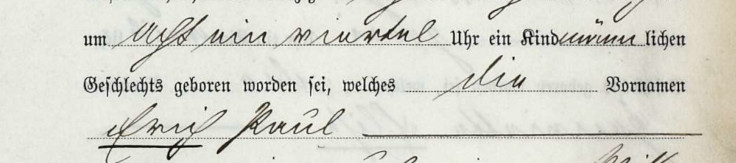 um acht ein viertel Uhr ein Kind männlichen
Geschlechts geboren worden sei, welches die Vornamen
Erich Paul